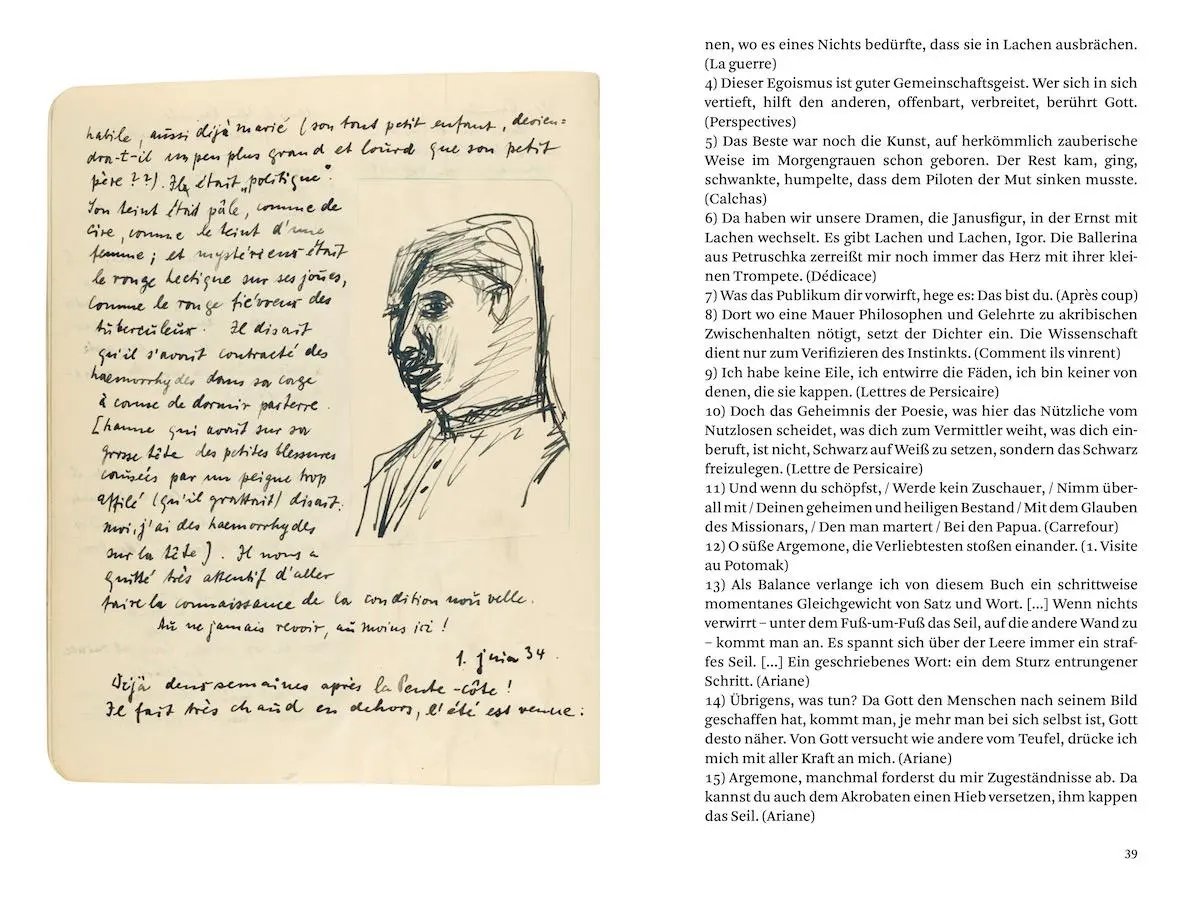 habile, aussi déjà marié (son tout petit enfant, devien=
dra-t-il un peu plus grand et lourd que son petit
père ??). Il était „politique".
Son teint était pâle, comme de
cire, comme le teint d'une
femme; et mystérieux était
le rouge hectique sur ses joues,
comme le rouge fiévreux des
tuberculeux. Il disait
qu'il s'avait contracté des
haemorrhydes dans sa cage
à cause de dormir parterre.
[hanne qui avait sur sa
grosse tête des petites blessures
causées par un peigne trop
affilé (qu'il grattait) disait:
moi, j'ai des haemorrhydes
sur la tête]. Il nous a
quitté très attentif d'aller
faire la connaissance de la condition nouvelle.
Au ne jamais revoir, au moins ici!
1. juin 34.
Déjà deux semaines après la Pente-côte!
Il fait très chaud en dehors, l'été est venue.
nen, wo es eines Nichts bedürfte, dass sie in Lachen ausbrächen.
(La guerre)
4) Dieser Egoismus ist guter Gemeinschaftsgeist. Wer sich in sich
vertieft, hilft den anderen, offenbart, verbreitet, berührt Gott.
(Perspectives)
5) Das Beste war noch die Kunst, auf herkömmlich zauberische
Weise im Morgengrauen schon geboren. Der Rest kam, ging,
schwankte, humpelte, dass dem Piloten der Mut sinken musste.
(Calchas)
6) Da haben wir unsere Dramen, die Janusfigur, in der Ernst mit
Lachen wechselt. Es gibt Lachen und Lachen, Igor. Die Ballerina
aus Petruschka zerreißt mir noch immer das Herz mit ihrer klei-
nen Trompete. (Dédicace)
7) Was das Publikum dir vorwirft, hege es: Das bist du. (Après coup)
8) Dort wo eine Mauer Philosophen und Gelehrte zu akribischen
Zwischenhalten nötigt, setzt der Dichter ein. Die Wissenschaft
dient nur zum Verifizieren des Instinkts. (Comment ils vinrent)
9) Ich habe keine Eile, ich entwirre die Fäden, ich bin keiner von
denen, die sie kappen. (Lettres de Persicaire)
10) Doch das Geheimnis der Poesie, was hier das Nützliche vom
Nutzlosen scheidet, was dich zum Vermittler weiht, was dich ein-
beruft, ist nicht, Schwarz auf Weiß zu setzen, sondern das Schwarz
freizulegen. (Lettre de Persicaire)
11) Und wenn du schöpfst, / Werde kein Zuschauer, / Nimm über-
all mit / Deinen geheimen und heiligen Bestand / Mit dem Glauben
des Missionars, / Den man martert / Bei den Papua. (Carrefour)
12) O süße Argemone, die Verliebtesten stoßen einander. (1. Visite
au Potomak)
13) Als Balance verlange ich von diesem Buch ein schrittweise
momentanes Gleichgewicht von Satz und Wort. [...] Wenn nichts
verwirrt – unter dem Fuß-um-Fuß das Seil, auf die andere Wand zu
– kommt man an. Es spannt sich über der Leere immer ein straf-
fes Seil. [...] Ein geschriebenes Wort: ein dem Sturz entrungener
Schritt. (Ariane)
14) Übrigens, was tun? Da Gott den Menschen nach seinem Bild
geschaffen hat, kommt man, je mehr man bei sich selbst ist, Gott
desto näher. Von Gott versucht wie andere vom Teufel, drücke ich
mich mit aller Kraft an mich. (Ariane)
15) Argemone, manchmal forderst du mir Zugeständnisse ab. Da
kannst du auch dem Akrobaten einen Hieb versetzen, ihm kappen
das Seil. (Ariane)
39